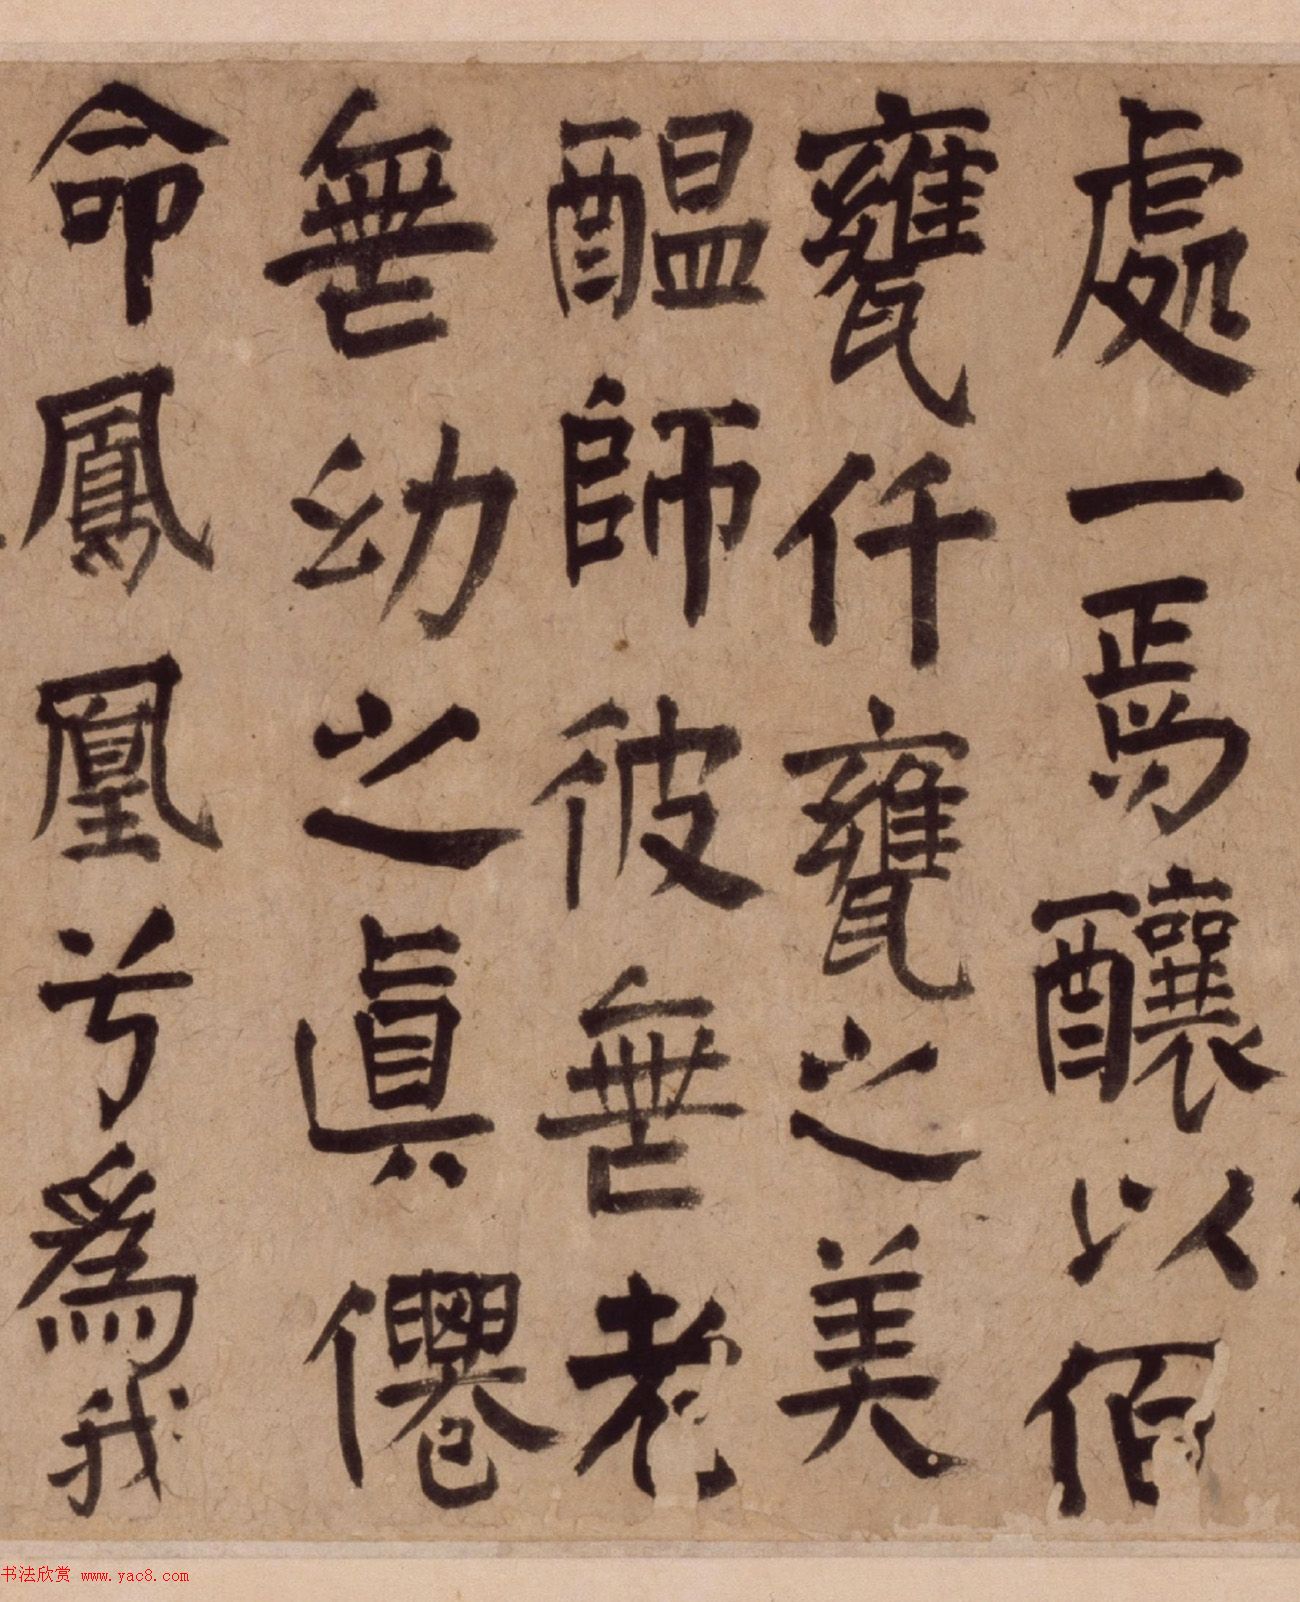 處一焉釀以佰
甕仟甕之美
醞師彼無老
無幼之真僊
命鳳凰兮為我
书法欣赏 www.yac8.com